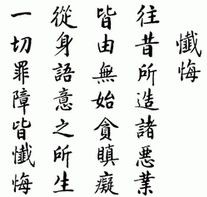 懺悔
往昔所造諸惡業
皆由無始貪瞋癡
從身語意之所生
一切罪障皆懺悔